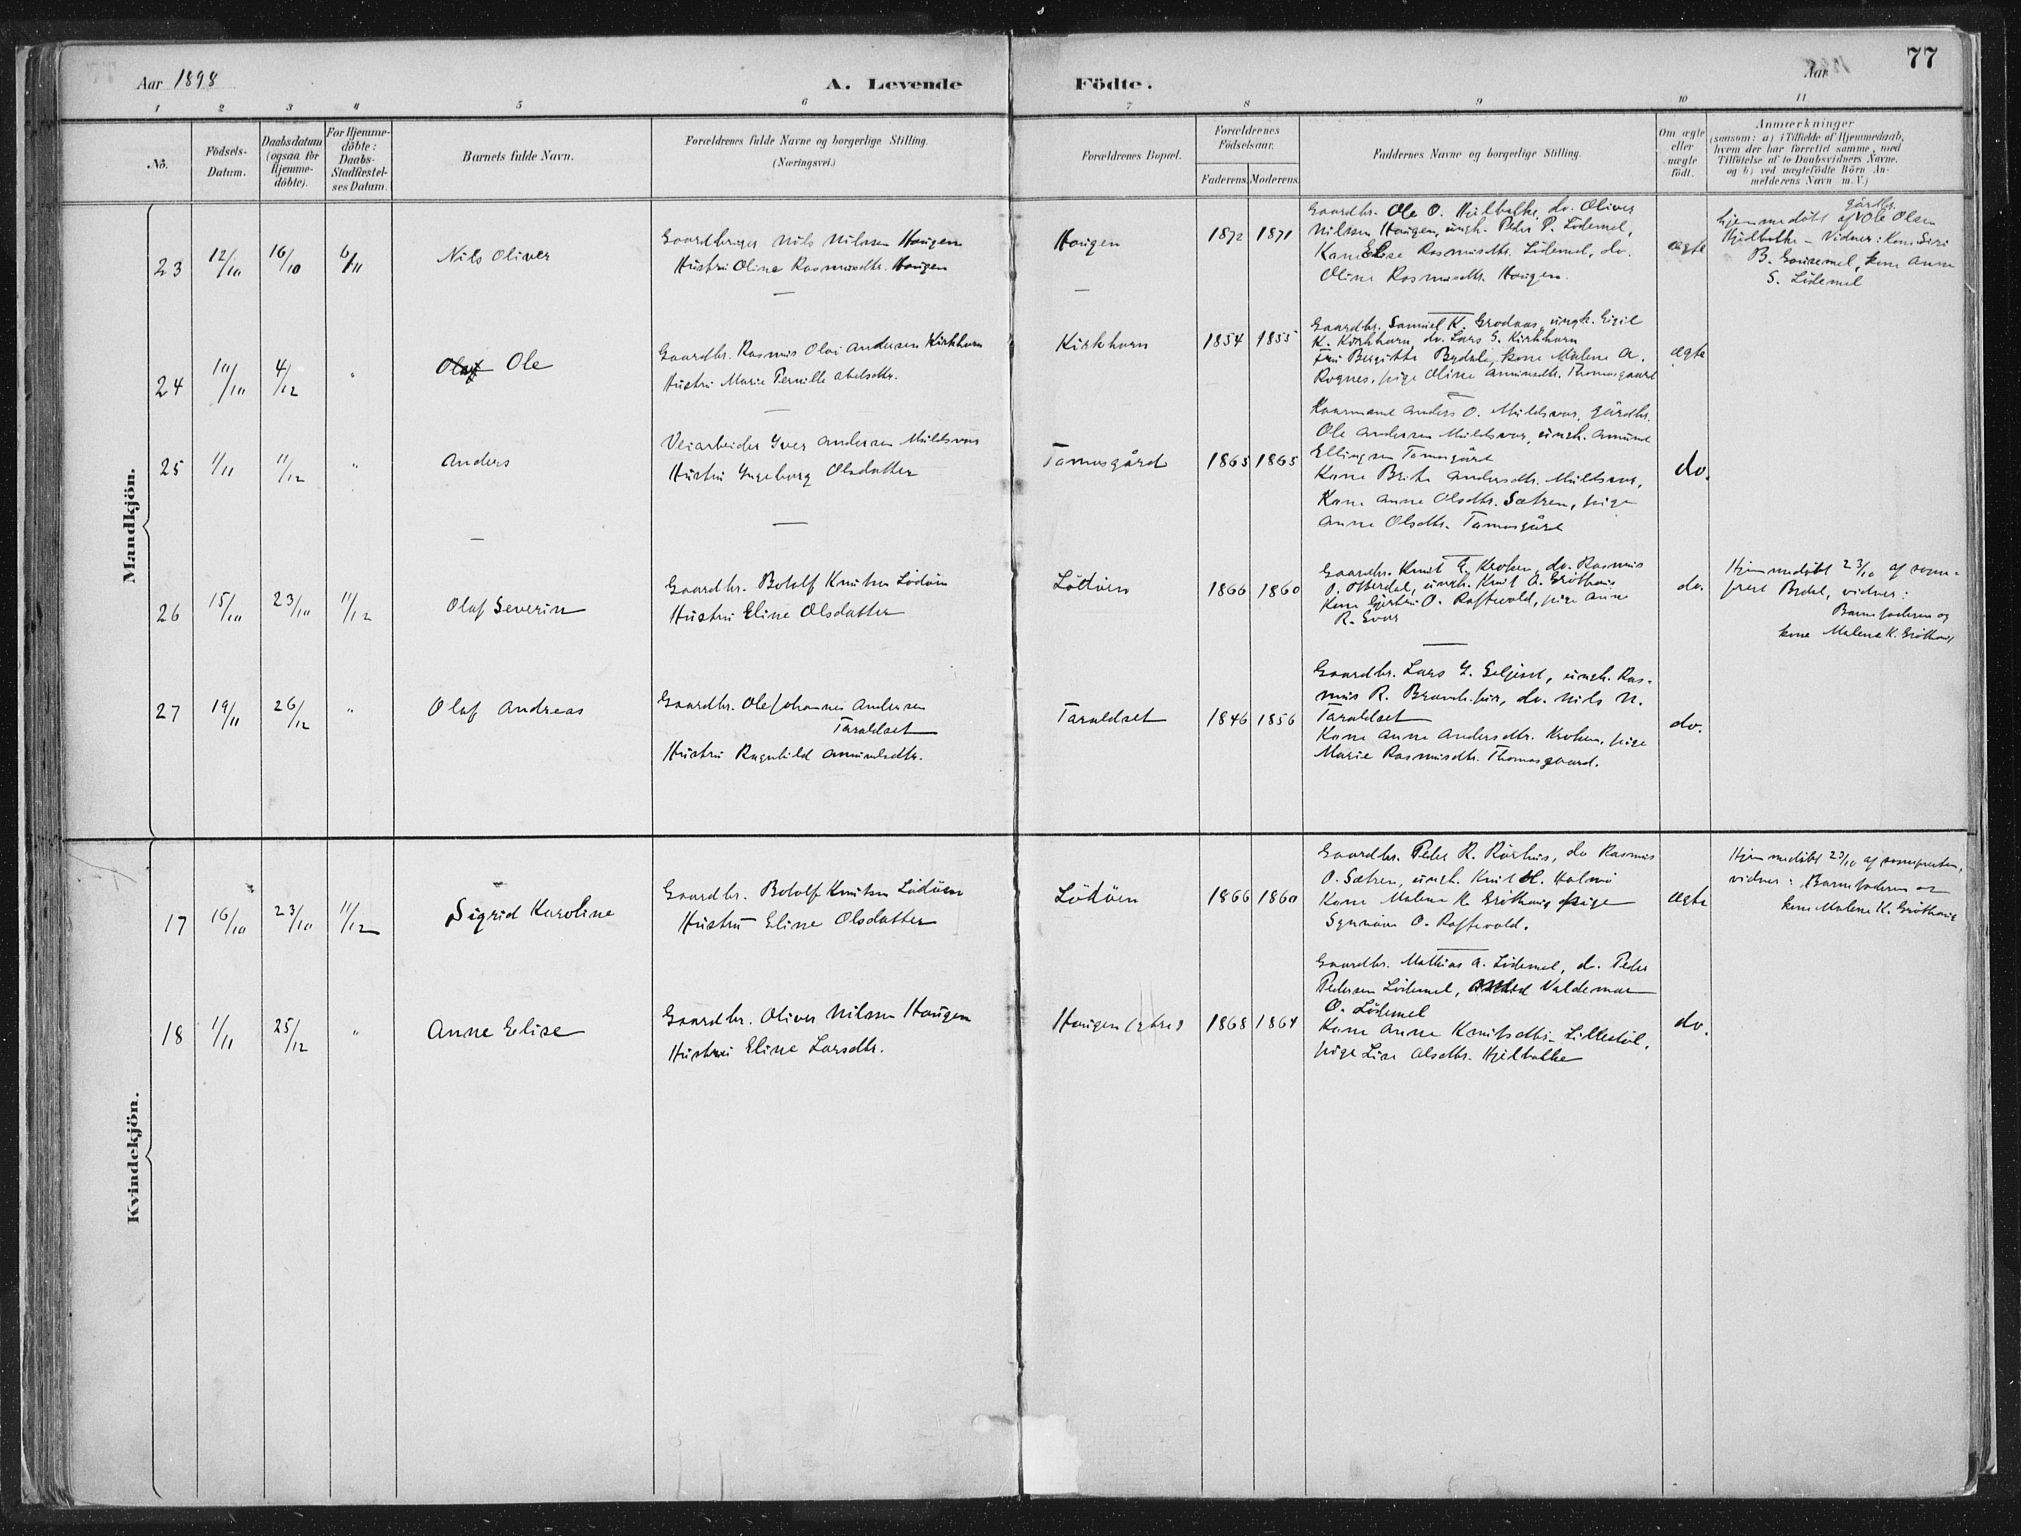 Aar 1898
A. Levende
Födte.
Aar
77
1 2 3 4 5 6 7 8 9 10 11
No.
Födsels-
Datum.
Daabsdatum
(ogsaa for
Hjemme-
döbte).
For Hjemme-
döbte:
Daabs-
Stadfæstel-
ses Datum.
Barnets fulde Navn.
Forældrenes fulde Navne og borgerlige Stilling.
(Næringsvei.)
Forældrenes Bopæl.
Forældrenes
Födselsaar.
Faderens. Moderens.
Faddernes Navne og borgerlige Stilling.
Om ægte
eller
uægte
födt.
Anmærkninger
(saasom: a) i Tilfælde af Hjemmedaab,
hvem der har forrettet samme, med
Tilföielse af to Daabsvidners Navne.
og b) ved uægtefödte Börn An-
melderens Navn m. V.)
Mandkjön.
23 12/10 16/10 6/11
Nils Oliver
Gaardbruger Nils Nilssen Haugen
Hustru Oline Rasmusdtr. Haugen
Haugen
1872 1871
Gaardbr. Ole O. Hjelbakke, do. Oliver
Nilssen Haugen, ungk. Peder P. Lödemel,
Kone Else Rasmusdtr. Lödemel, do.
Oline Rasmusdtr. Haugen.
ægte
gårdbr.
hjemmedöbt af Ole Olsen
Hjelbakke – Vidner: Kone Siri
B. kone Anne
S. Lödemel
24 10/10 4/12 "
Olaf Ole
Gaardbr. Rasmus Olai Andersen Kirkhorn
Hustru Marie Pernille Abelsdtr.
Kirkhorn
1854 1855
Gaardbr. Samuel K. Grodaas, ungk. Eigil
K. Kirkhorn, do. Lars S. Kirkhorn
Fru Birgitte Bydale, kone Malene A.
Rognes, pige Oline Amundsdtr. Thomasgaard
ægte
25 1/11 11/12 "
Anders
Veiarbeider Iver Andersen Muldsvor
Hustru Ingeborg Olsdatter
Tomasgård
1865 1865
Kaarmand Anders O. Muldsvor, gårdbr.
Ole Andersen Muldsvor, ungk. Amund
Ellingsen Tomasgård
Kone Brite Andersdtr. Muldsvor,
Kone Anne Olsdtr. Sætren, pige
Anne Olsdtr. Tomasgård
do.
26 15/10 23/10 11/12
Olaf Severin
Gaardbr. Botolf Knutsen Lödöen
Hustru Eline Olsdatter
Lödöen
1866 1860
Gaardbr. Knut E. Kroken, do. Rasmus
O. Otterdal, ungk. Knut A. Gröthaug
Kone Gjertrui O. Raftevold, pige Anne
R. Evor
do.
Hjemmedöbt 23/10 af sogne-
prest Bydal, vidner:
Barnefaderen og
kone Malene K. Gröthaug
27 19/11 26/12 "
Olaf Andreas
Gaardbr. Ole Johannes Andersen
Taraldset
Hustru Ragnhild Amundsdtr.
Taraldset
1846 1856
Gaardbr. Lars G. ungk. Ras-
mus R. do. Nils N.
Taraldset
Kone Anne Andersdtr. Kroken, pige
Marie Rasmusdtr. Thomasgaard.
do.
Kvindekjön.
17 16/10 23/10 11/12
Sigrid Karoline
Gaardbr. Botolf Knutsen Lödöen
Hustru Eline Olsdatter
Lödöen
1866 1860
Gaardbr. Peder R. Rörhus, do Rasmus
O. Sætren, ungk. Knut H. Holmö
Kone Malene K. Gröthaug pige
Synnöve O. Raftevold.
ægte
Hjemmedöbt 23/10 af sognepresten,
vidner: Barnefaderen og
kone Malene K. Gröthaug
18 1/11 25/12 "
Anne Elise
Gaardbr. Oliver Nilssen Haugen
Hustru Eline Larsdtr.
Haugen
1868 1864
Gaardbr. Mathias A. Lödemel, do. Peder
Pedersen Lödemel, Valdemar
O. Lödemel
Kone Anne Knutsdtr. Lillestöl,
pige Lise Olsdtr. Hjelbakke
do.